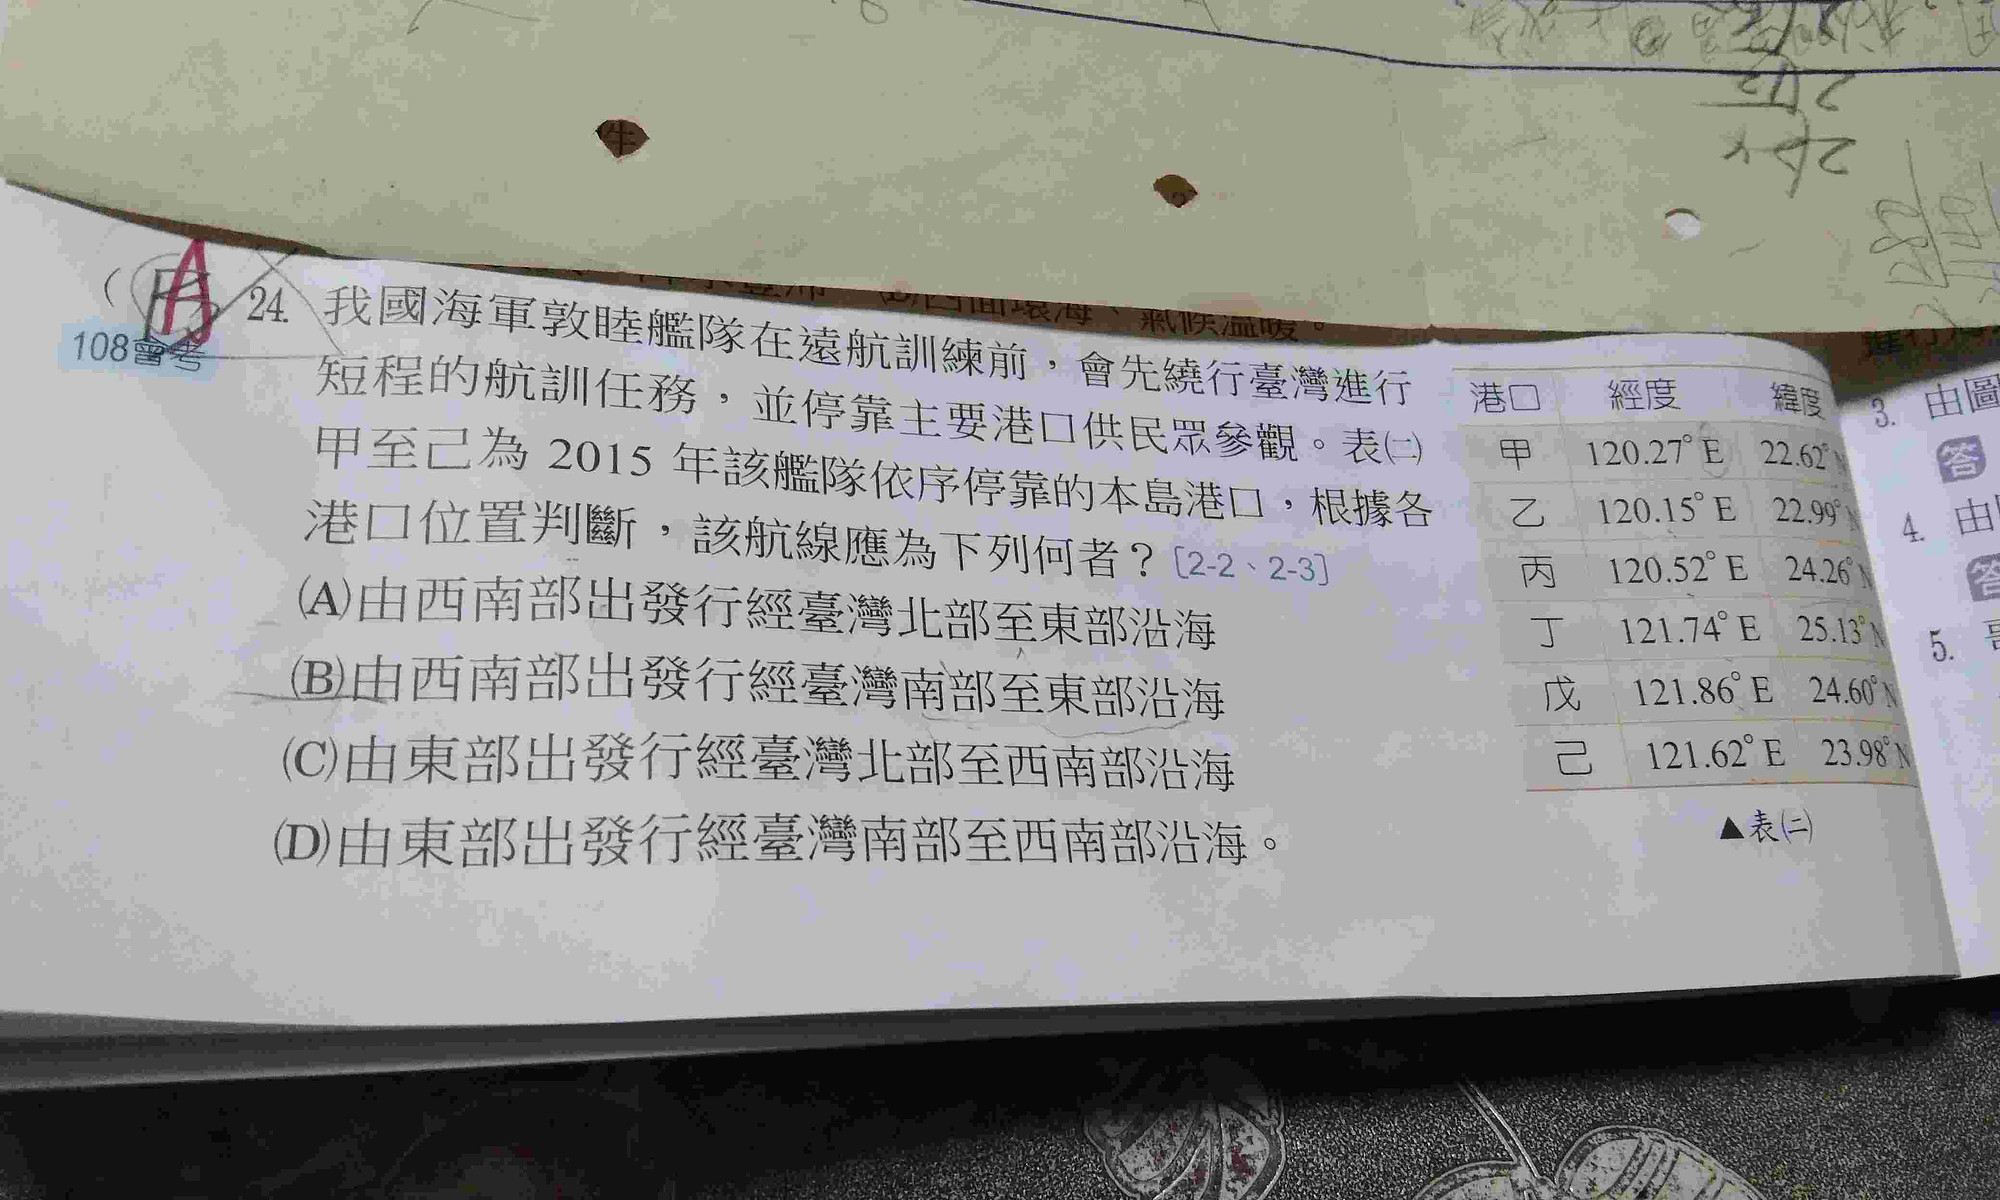 牛
(D)四面環海、氣候溫暖。
( A 24. 我國海軍敦睦艦隊在遠航訓練前，會先繞行臺灣進行
108會考
短程的航訓任務，並停靠主要港口供民眾參觀。表㈡
甲至己為 2015 年該艦隊依序停靠的本島港口，根據各
港口位置判斷，該航線應為下列何者？〔2-2、2-3〕
(A)由西南部出發行經臺灣北部至東部沿海
(B)由西南部出發行經臺灣南部至東部沿海
(C)由東部出發行經臺灣北部至西南部沿海
(D)由東部出發行經臺灣南部至西南部沿海。
港口 經度 緯度
甲 120.27°E 22.62°N
乙 120.15°E 22.99°N
丙 120.52°E 24.26°N
丁 121.74°E 25.13°N
戊 121.86°E 24.60°N
己 121.62°E 23.98°N
▲表㈡
3. 由圖
答
4. 由
答
5.